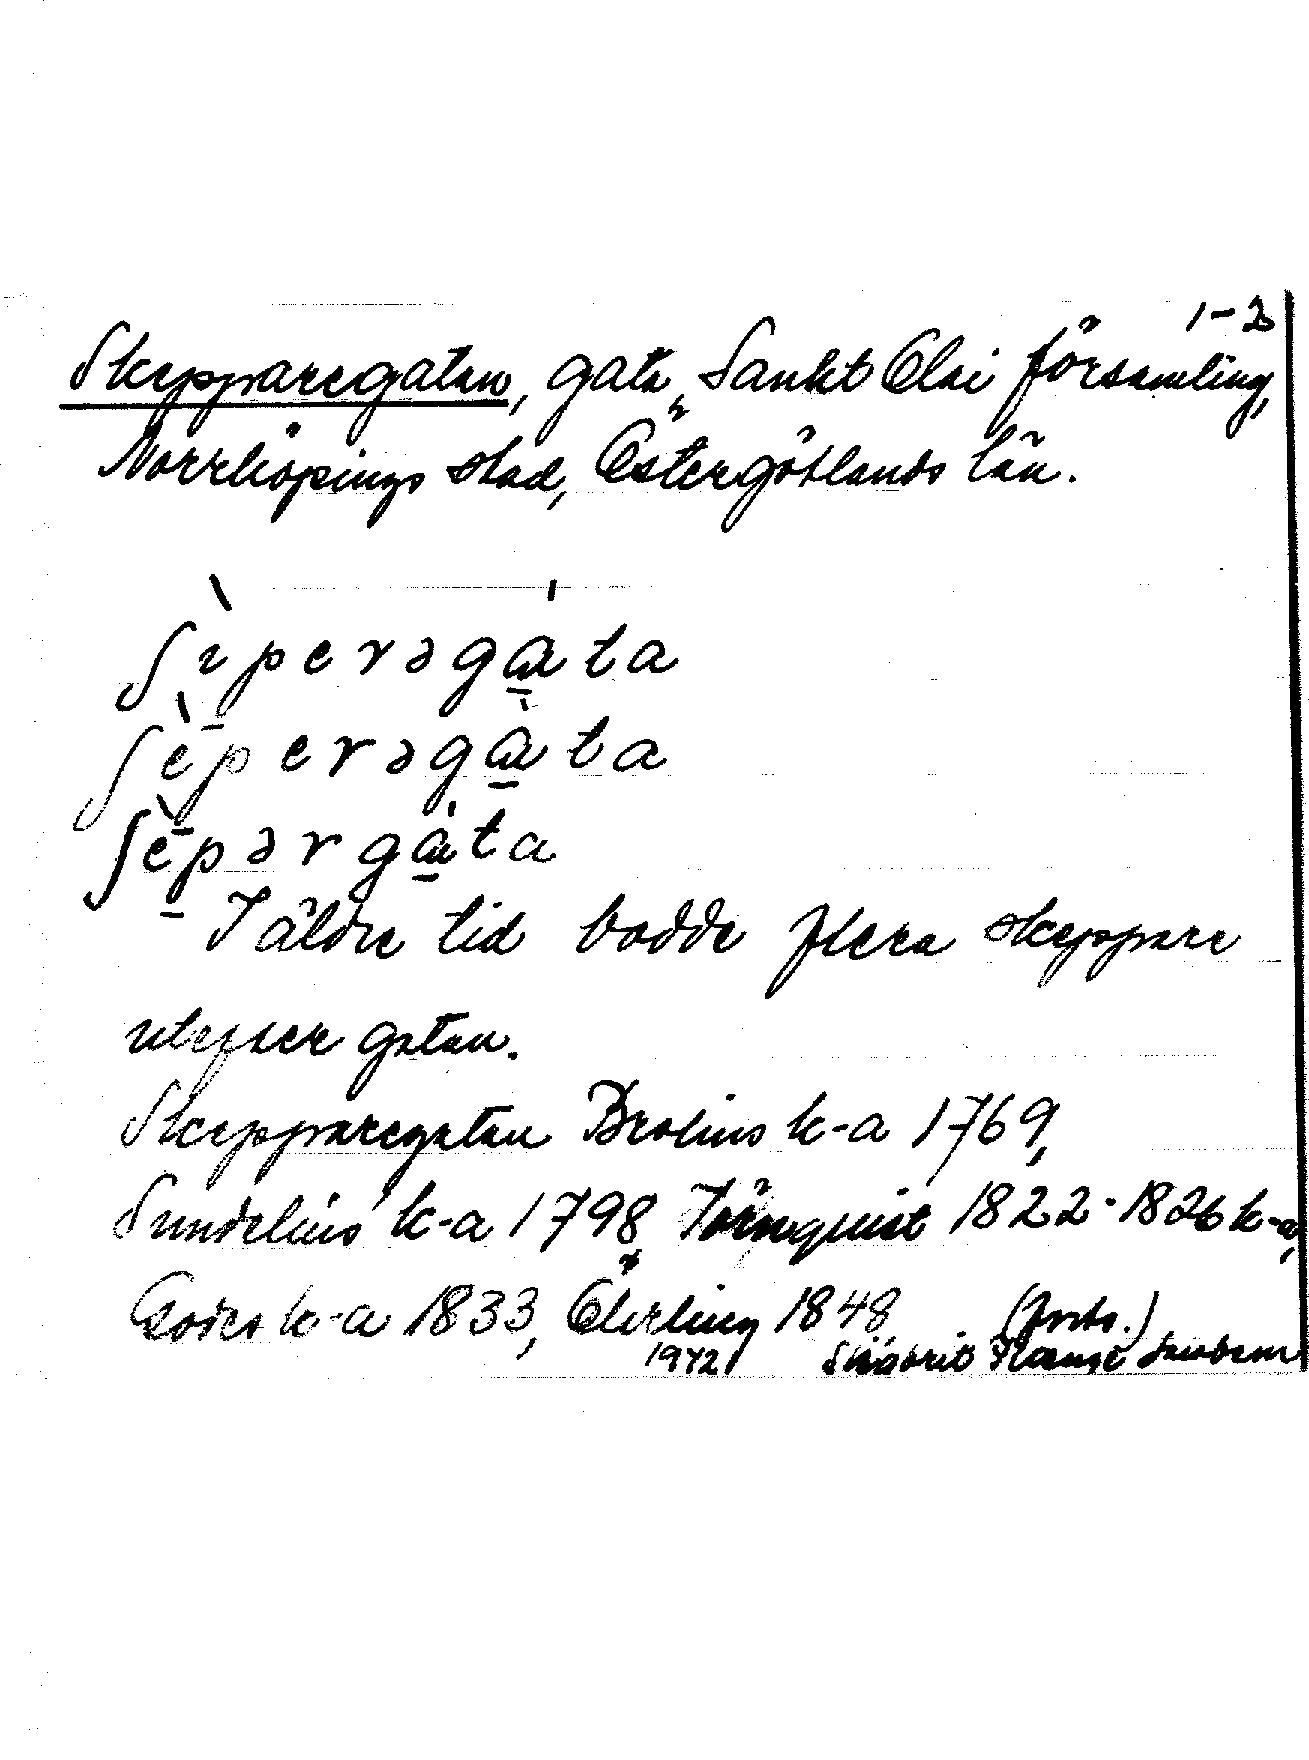 1-2
Skepparegatan, gata, Sankt Olai församling,
Norrköpings stad, Östergötlands län.
ʃìperəgáta
ʃèperəgàta
ʃèpərgáta
I äldre tid bodde flera skeppare
utefter gatan.
Skepparegatan Brolius k-a 1769,
Sundelius k-a 1798, Törnquist 1822-1826 k-a,
Godes k-a 1833, Ehrling 1848 (forts.)
1942